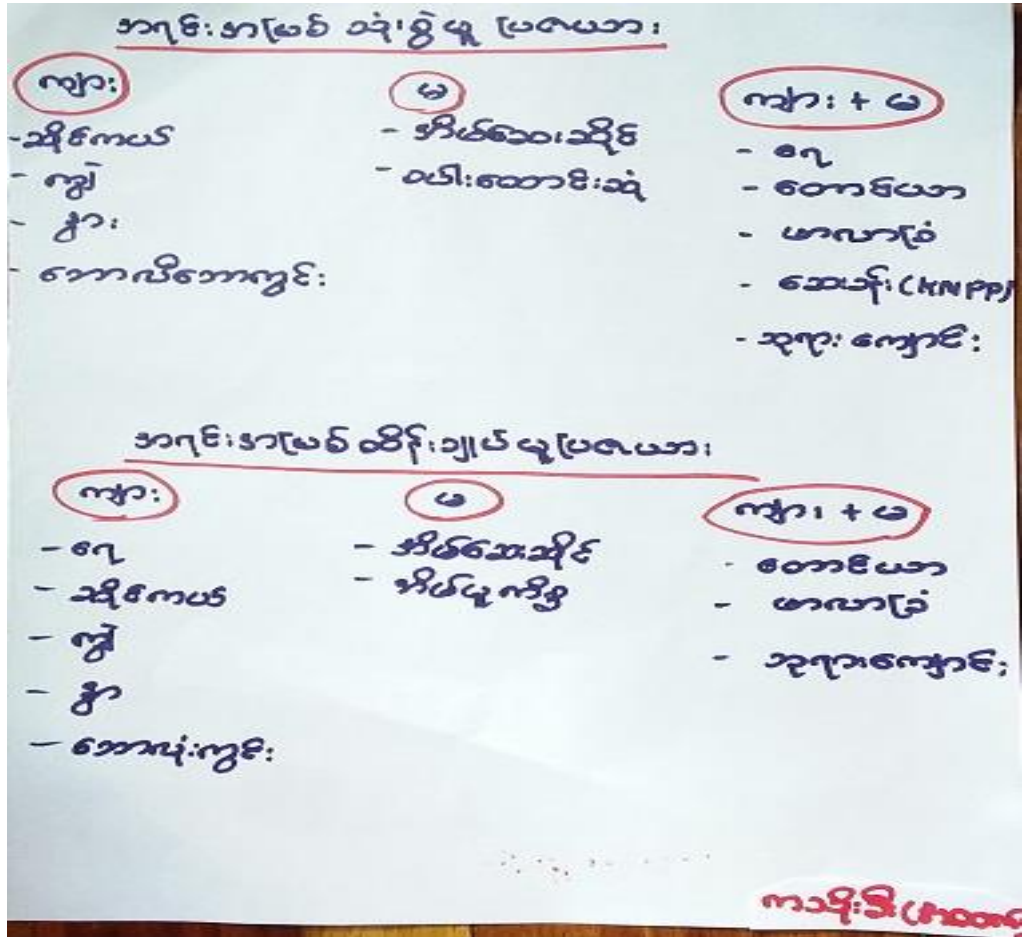 အရင်းအမြစ် သုံးစွဲသူ ပြဇယား
ကျား
- ဆိုင်ကယ်
- ကျွဲ
- နွား
- ဘောလီဘောကွင်း
မ
- အိမ်ဆေးဆိုင်
- စပါးထောင်းဆုံ
ကျား + မ
- ရေ
- တောင်ယာ
- ဖာလာခြံ
- ဆေးခန်း (KNPP)
- ဘုရားကျောင်း
အရင်းအမြစ် ထိန်းချုပ်သူ ပြဇယား
ကျား
- ရေ
- ဆိုင်ကယ်
- ကျွဲ
- နွာ
- ဘောလုံးကွင်း
မ
- အိမ်ဆေးဆိုင်
- အိမ်သူကိစ္စ
ကျား + မ
- တောင်ယာ
- ဖာလာခြံ
- ဘုရားကျောင်း